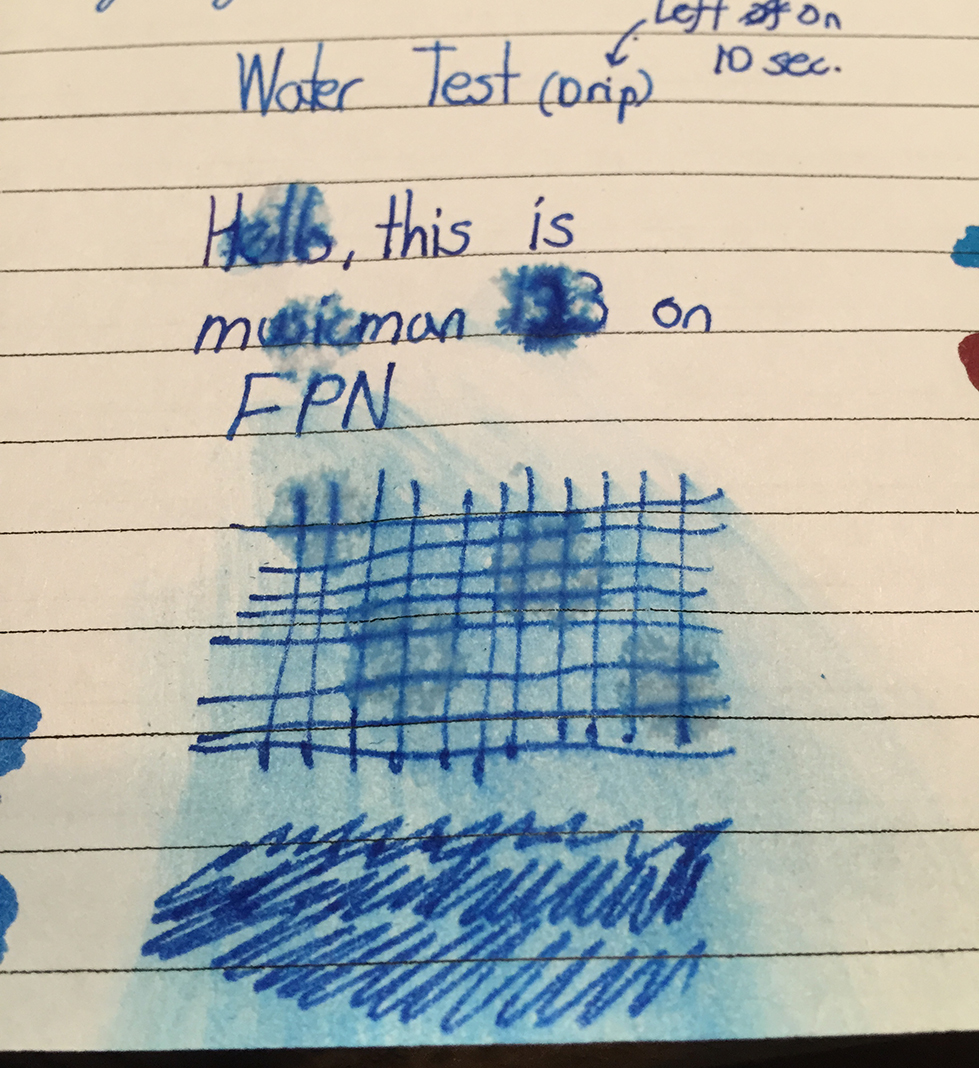 Left on
10 sec.
Water Test (Drip)
Hello, this is
musicman 123 on
FPN